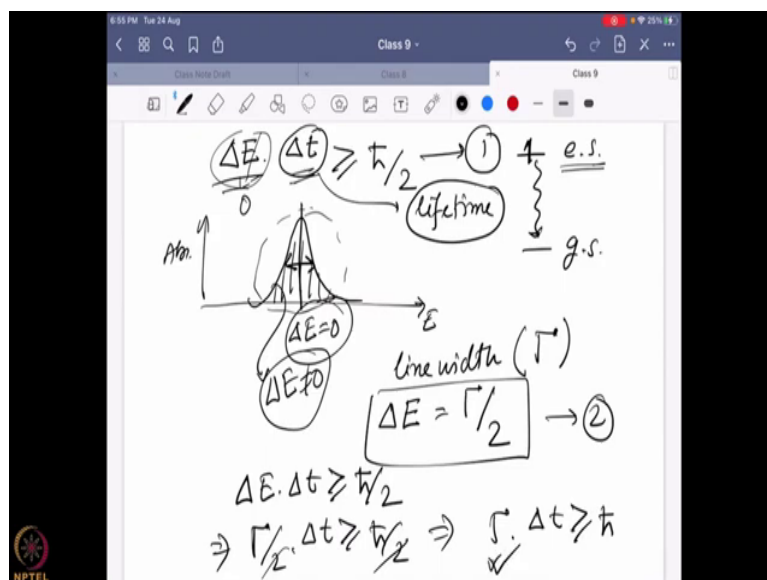 6:55 PM Tue 24 Aug
25%
Class 9
Class Note Draft
Class 8
Class 9
ΔE. Δt ≥ ħ/2 → ① e.s.
0
lifetime
g.s.
Abs.
E
ΔE=0
ΔE≠0
line width (Γ)
ΔE = Γ/2 → ②
ΔE. Δt ≥ ħ/2
⇒ Γ/2. Δt ≥ ħ/2 ⇒ Γ. Δt ≥ ħ
NPTEL